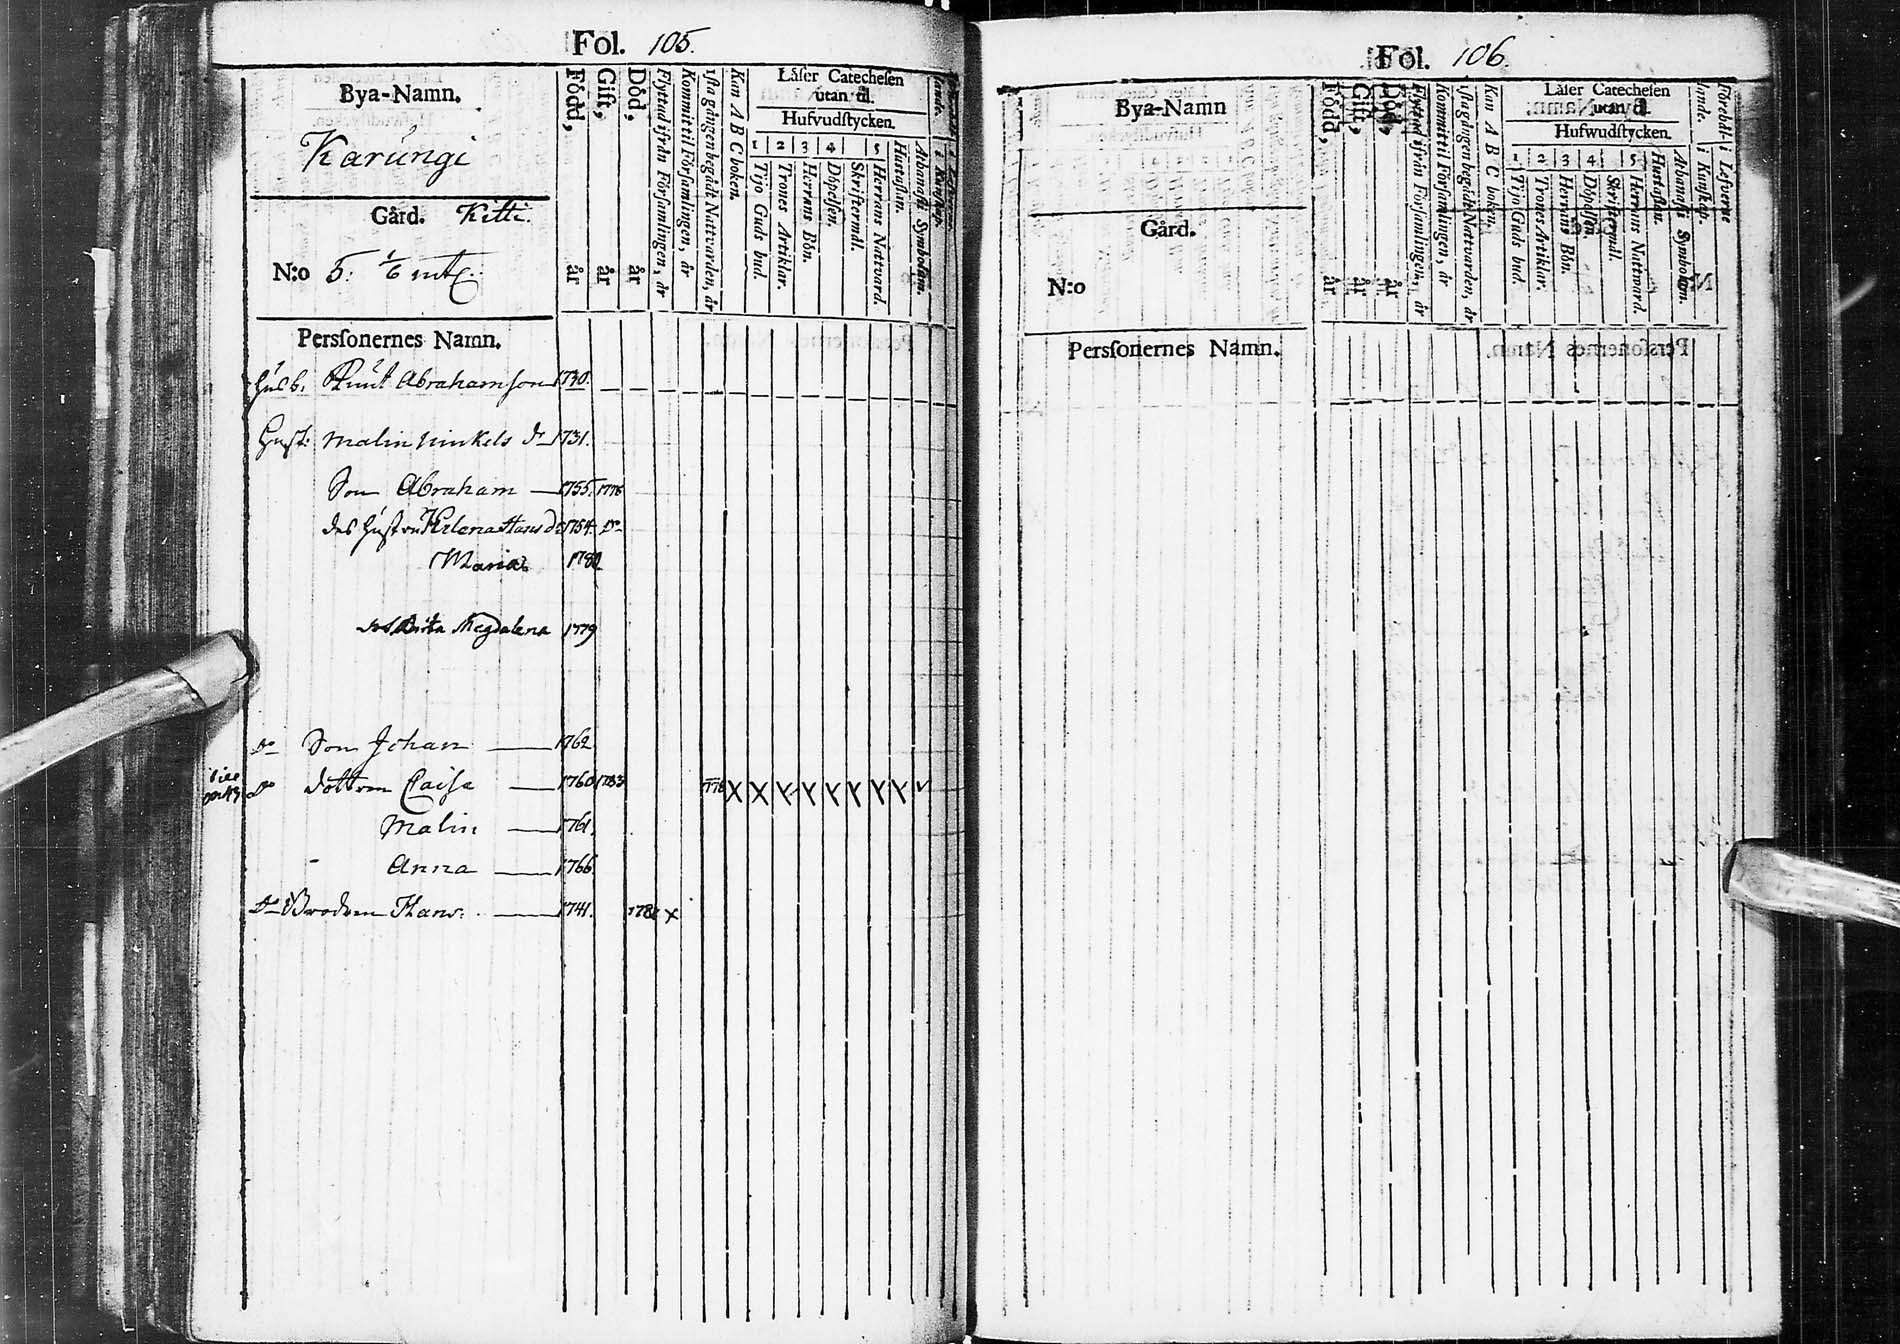 Fol. 105.
Bya-Namn.
Karungi
Gård. Kitti.
N:o 5. 1/6 mtl.
Personernes Namn.
Född, år
Gift, år
Död, år
Flyttad ifrån Församlingen, år
Kommit til Församlingen, år
1sta gången begådt Nattvarden, år
Kan A B C boken.
Läser Catechesen
utan til.
Hufvudstycken.
1 2 3 4 5
Tijo Guds bud.
Trones Artiklar.
Herrans Bön.
Döpelsen.
Skriftermål.
Herrans Nattvard.
Hustaflan.
Athanasii Symbolum.
Husb. Knut Abrahamson 1730.
Hust: Malin Ninkels dr 1731.
Son Abraham 1755. 1776
des Hustru Helena Hans dr 1754. do
Maria 1780
Brita Magdalena 1779
do Son Johan 1762
do dottren Caisa 1760 1783 1776 X X X X X X X X
Malin 1761.
Anna 1766.
do Brodren Hans. 1741. 1782 x
Fol. 106.
Bya-Namn
Gård.
N:o
Personernes Namn.
Född, år
Gift, år
Död, år
Flyttad ifrån Församlingen, år
Kommit til Församlingen, år
1sta gången begådt Nattvarden, år
Kan A B C boken.
Läser Catechesen
utan til.
Hufwudstycken.
1 2 3 4 5
Tijo Guds bud.
Trones Artiklar.
Herrans Bön.
Döpelsen.
Skriftermål.
Herrans Nattvard.
Hustaflan.
Athanasii Symbolum.
Förehållande.
i Kunskap.
i Lefverne